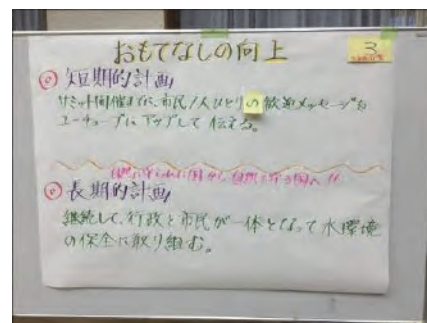 おもてなしの向上
3
◎短期的計画
サミット開催までに、市民1人ひとりの歓迎メッセージを
ユーチューブにアップして伝える。
◎長期的計画
継続して、行政と市民が一体となって水環境
の保全に取り組む。